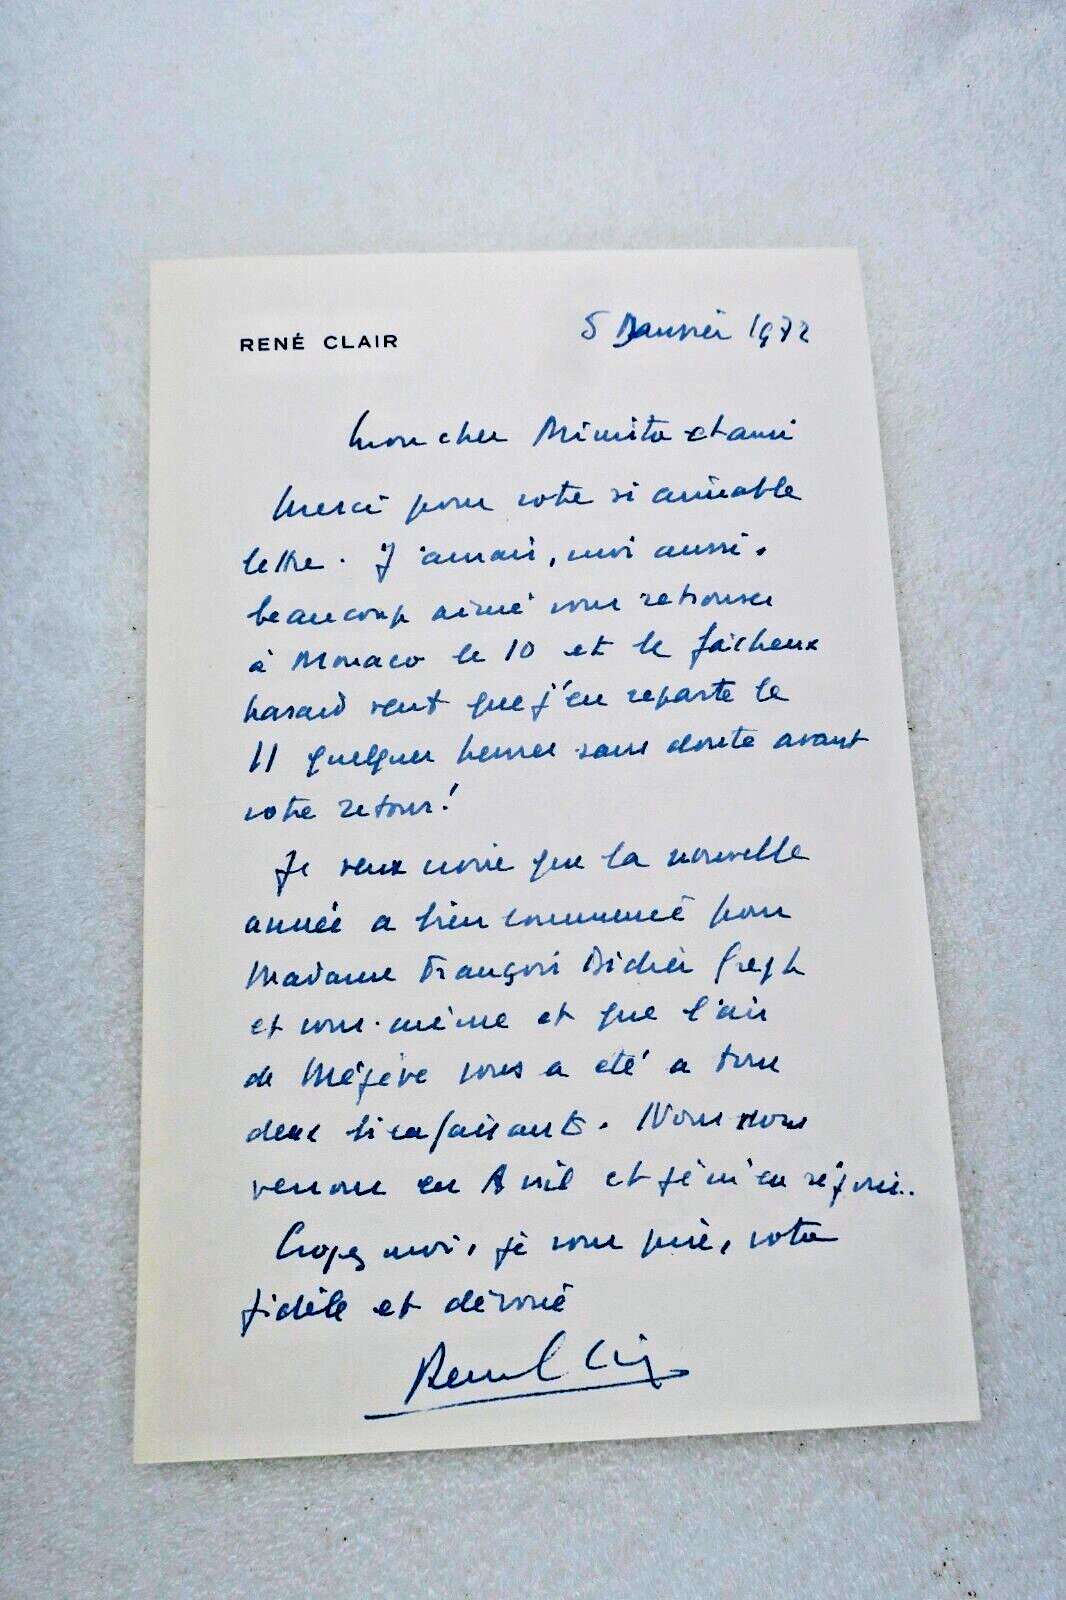 RENÉ CLAIR
5 Janvier 1972
Mon cher Ministre et ami
Merci pour votre si aimable
lettre. J'aurais, moi aussi,
beaucoup aimé vous retrouver
à Monaco le 10 et le fâcheux
hasard veut que j'en reparte le
11 quelques heures sans doute avant
votre retour!
Je veux croire que la nouvelle
année a bien commencé pour
Madame François Didier Gregh
et vous-même et que l'air
de Mégève vous a été à tous
deux bienfaisant. Nous nous
verrons en Avril et je m'en réjouis..
Croyez moi, je vous prie, votre
fidèle et dévoué
René Clair